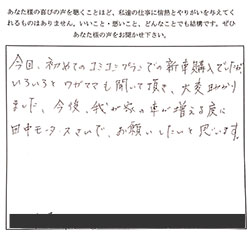 あなた様の喜びの声を聴くことほど、私達の仕事に情熱とやりがいを与えてく
れるものはありません。いいこと・悪いこと、どんなことでも結構です。ぜひ
あなた様の声をお聞かせ下さい。
今回、初めてのコミコミプランでの新車購入でしたが、
いろいろとワガママも聞いて頂き、大変助かり
ました。今後、我が家の車が増える度に
田中モータースさんで、お願いしたいと思います。